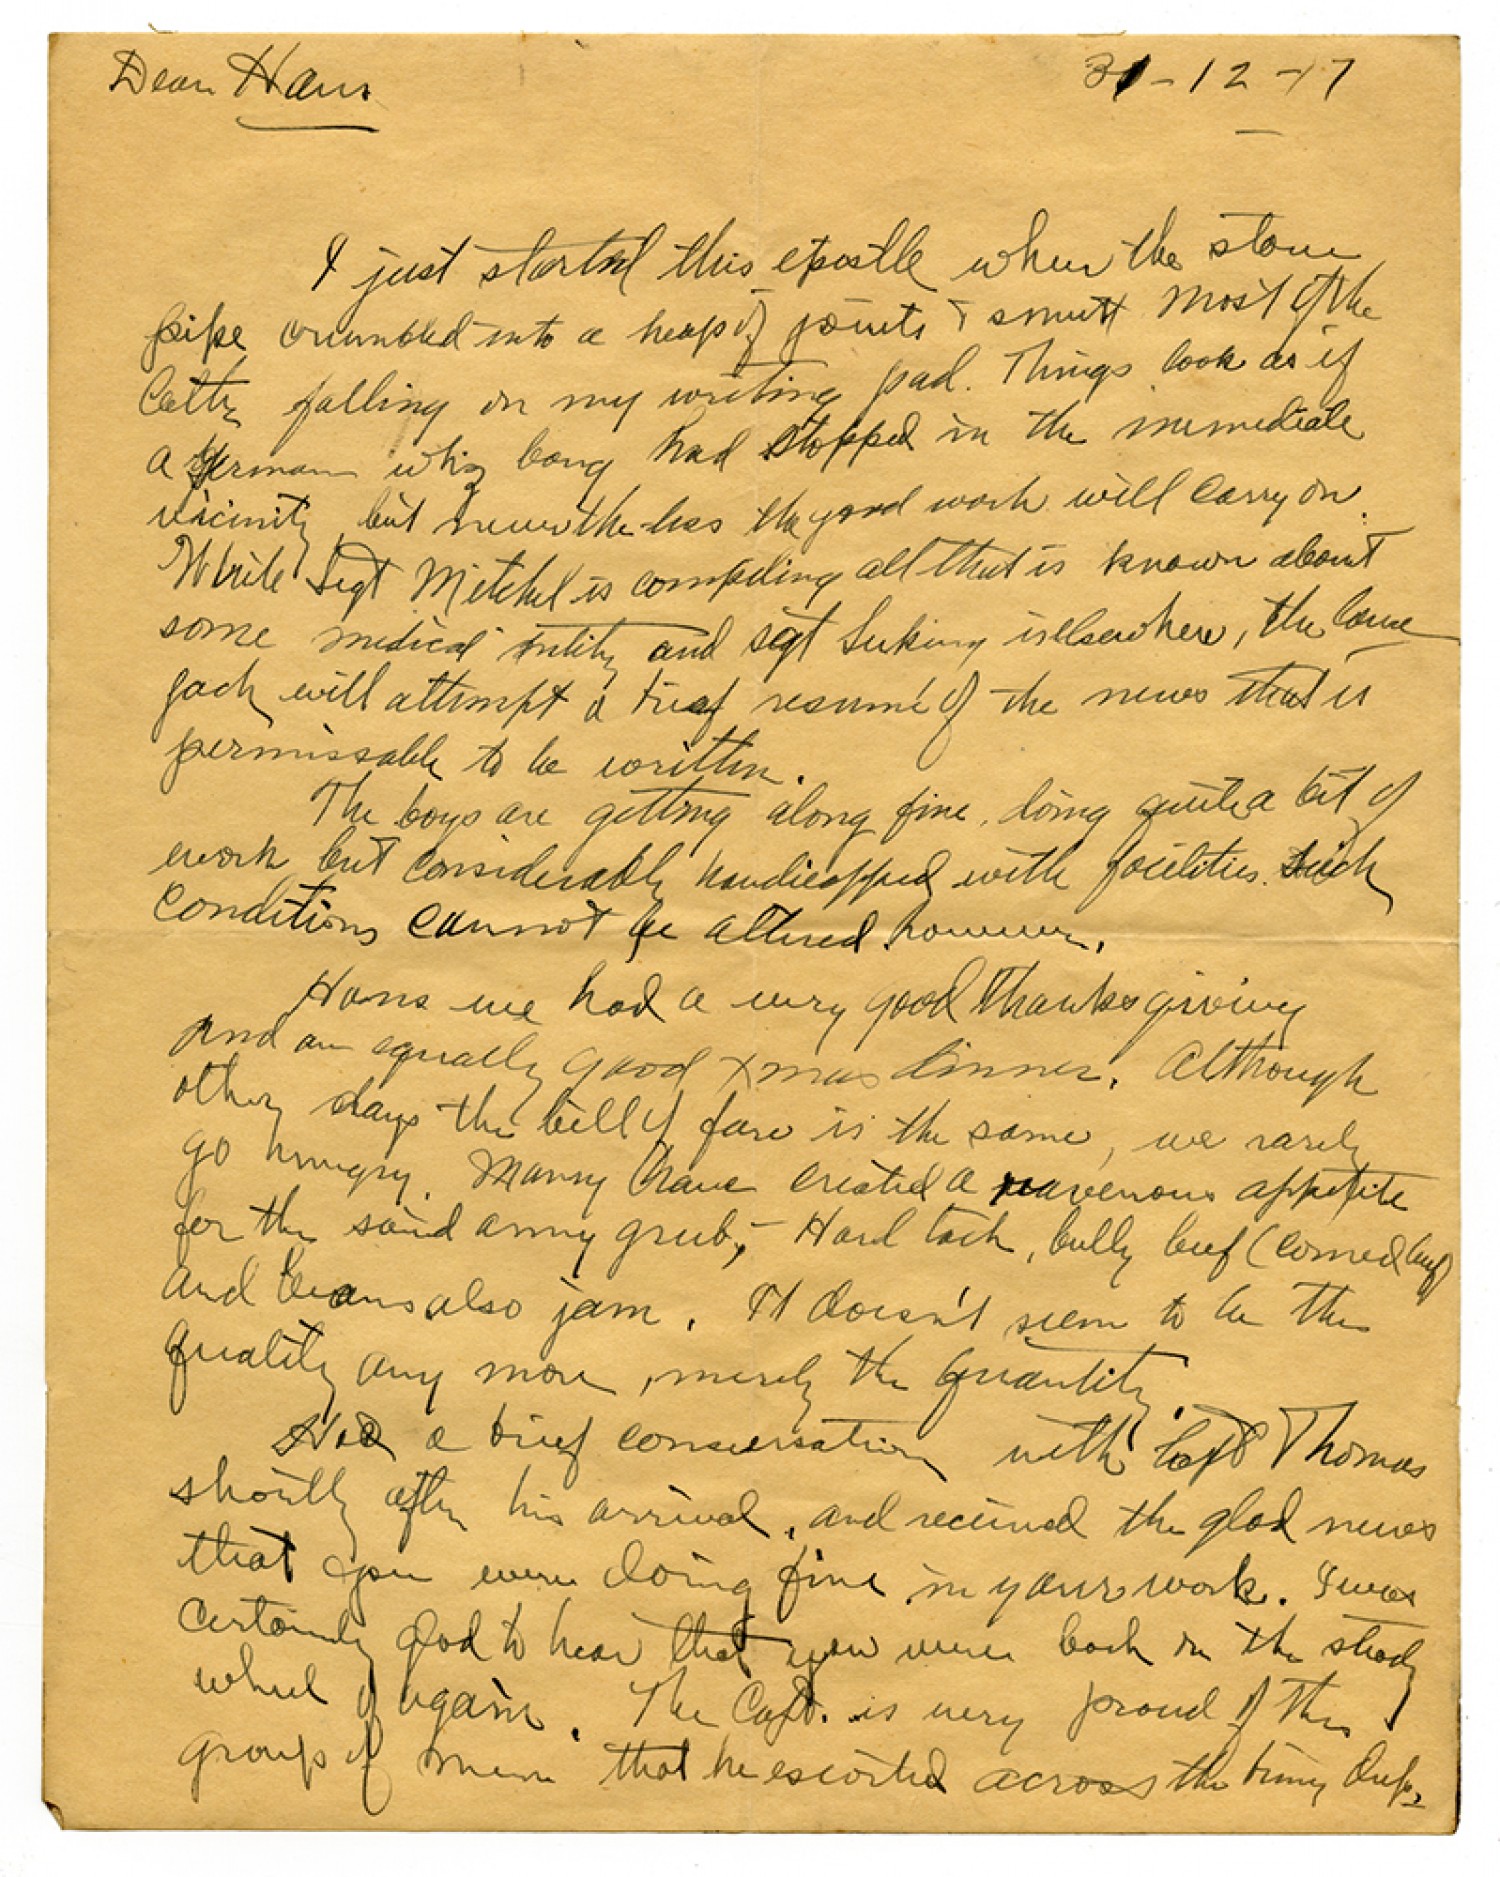 Dear Hans
31-12-17
I just started this epistle when the stove
pipe crumbled into a heap of joints & smutt most of the
latter falling on my writing pad. Things look as if
a German whiz bang had stopped in the immediate
vicinity but nevertheless the good work will carry on.
While Sgt Mitchel is compiling all that is known about
some medical entity and sgt Suking is elsewhere, the
jack will attempt a brief resumé of the news that is
permissable to be written.
The boys are getting along fine, doing quite a bit of
work but considerably handicapped with facilities. Such
conditions cannot be altered however.
Hans we had a very good Thanksgiving
and an equally good Xmas dinner. Although
other days the bill of fare is the same, we rarely
go hungry. Many have created a ravenous appetite
for the said army grub,- Hard tack, bully beef (corned beef)
and beans also jam. It doesn't seem to be the
quality any more, merely the quantity.
Had a brief conversation with Capt Thomas
shortly after his arrival, and received the glad news
that you were doing fine in your work. I was
certainly glad to hear that you were back on the study
wheel again. The Capt. is very proud of this
group of men that he escorted across the briny deep.